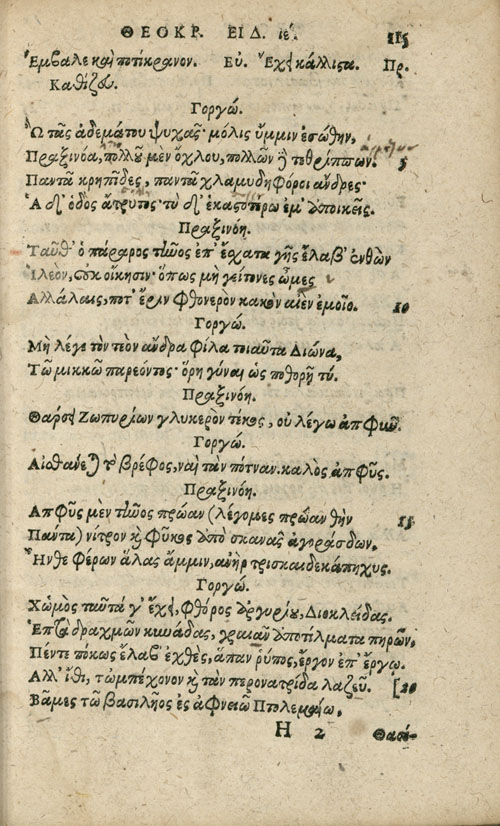 ΘΕΟΚΡ. ΕΙΔ. ιέ. 115
Ἔμβαλε καὶ ποτίκρανον. Εὐ. Ἔχει κάλλιστα. Πρ.
Καθίζευ.
Γοργώ.
Ὢ τᾶς ἀδεμάτου ψυχᾶς· μόλις ὔμμιν ἐσώθην,
Πραξινόα, πολλοῦ μὲν ὄχλου, πολλῶν δὲ τεθρίππων. 5
Παντᾶ κρηπῖδες, παντᾶ χλαμυδηφόροι ἄνδρες·
Ἁ δ' ὁδὸς ἄτρυτος· τὺ δ' ἑκαστοτέρω ἔμ' ἀποικεῖς.
Πραξινόη.
Ταῦθ' ὁ πάραρος τῆνος ἐπ' ἔσχατα γῆς ἔλαβ' ἐνθὼν
Ἰλεὸν, οὐκ οἴκησιν· ὅπως μὴ γείτονες ὦμες
Ἀλλάλαις, ποτ' ἔριν φθονερὸν κακὸν αἰὲν ἐμοῖο. 10
Γοργώ.
Μὴ λέγε τὸν τεὸν ἄνδρα φίλα τοιαῦτα Διώνα,
Τῶ μικκῶ παρεόντος· ὅρη γύναι ὡς ποθορῆ τύ.
Πραξινόη.
Θάρσει Ζωπυρίων γλυκερὸν τέκος, οὐ λέγω ἀπφῦν.
Γοργώ.
Αἰσθάνεται τὸ βρέφος, ναὶ τὰν πότναν. καλὸς ἀπφῦς.
Πραξινόη.
Ἀπφῦς μὲν τῆνος πρώαν (λέγομες πρώαν θὴν 15
Πάντα) νίτρον καὶ φῦκος ἀπὸ σκανᾶς ἀγοράσδων,
Ἦνθε φέρων ἅλας ἄμμιν, ἀνὴρ τρισκαιδεκάπηχυς.
Γοργώ.
Χὠμὸς ταῦτά γ' ἔχει, φθόρος ἀργυρίου, Διοκλείδας.
Ἑπτὰ δραχμῶν κυνάδας, γραιᾶν ἀποτίλματα πηρῶν,
Πέντε πόκως ἔλαβ' ἐχθὲς, ἅπαν ῥύπος, ἔργον ἐπ' ἔργω.
Ἀλλ' ἴθι, τὠμπέχονον καὶ τὰν περονατρίδα λαζεῦ. [20
Βᾶμες τῶ βασιλῆος ἐς ἀφνειῶ Πτολεμαίω,
Η 2 Θασό-